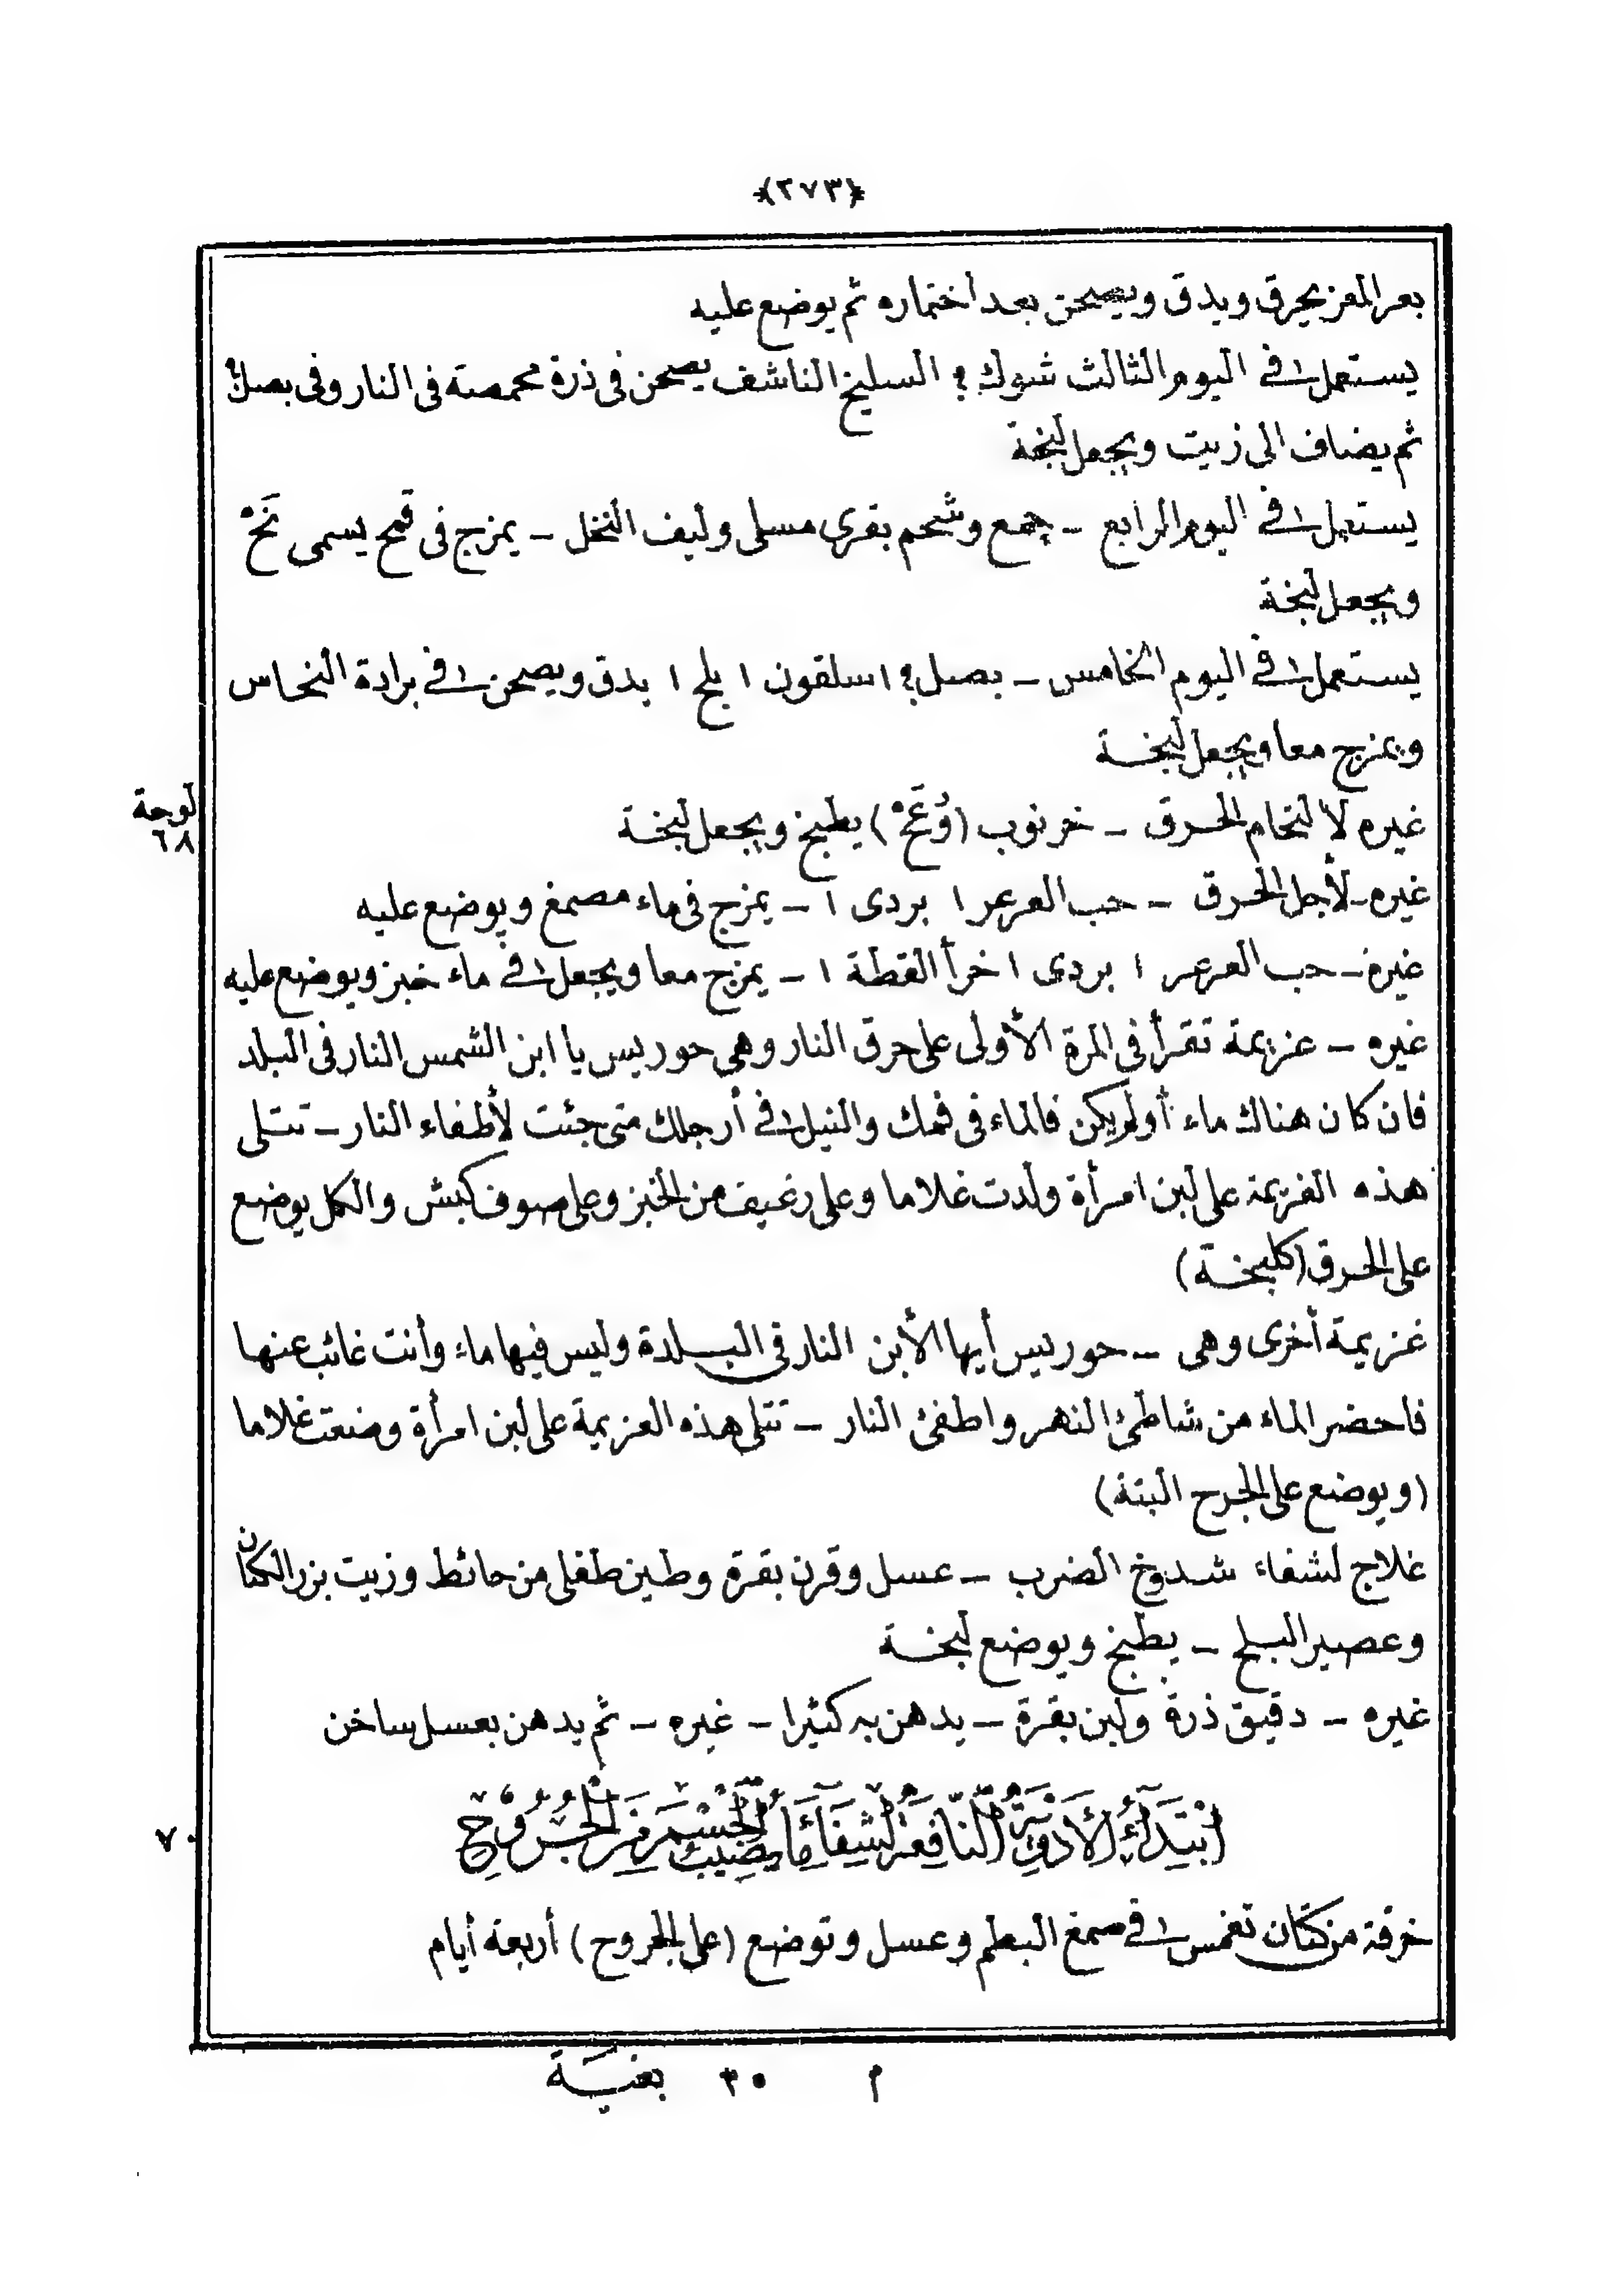 (٢٧٣)
بعر المعز يحرق ويدق ويصحن بعد اختماره ثم يوضع عليه
يستعمل ١ في اليوم الثالث شوك ؟ السليخ الناشف يصحن فى ذرة محمصة فى النار وفى بصل ؟
ثم يضاف الى زيت ويجعل لبخة
يستعمل ١ في اليوم الرابع ـ جمع وشحم بقرى مسلى وليف النخل ـ يمزج فى قمح يسمى نَحْ
ويجعل لبخة
يستعمل ١ في اليوم الخامس ـ بصل ؟ ١ سلقون ١ بلح ١ يدق ويصحن ١ في برادة النحاس
ويمزج معا ويجعل لبخة
لوحة ٦٨
غيره لالتحام الحرق ـ خرنوب (وُعَحْ) يطبخ ويجعل لبخة
غيره ـ لأجل الحرق ـ حب العرعر ١ بردى ١ ـ يمزج فى ماء مصمغ ويوضع عليه
غيره ـ حب العرعر ١ بردى ١ خرأ القطة ١ ـ يمزج معا ويجعل ١ في ماء خبز ويوضع عليه
غيره ـ عزيمة تقرأ فى المرة الأولى على حرق النار وهى حوريس يا ابن الشمس النار فى البلد
فان كان هناك ماء أولم يكن فالماء فى فمك والنيل ١ في أرجلك متى جئت لأطفاء النار ـ تتلى
هذه العزيمة على لبن امرأة ولدت غلاما وعلى رغيف من الخبز وعلى صوف كبش والكل يوضع
على الحرق (كلبخة)
عزيمة أخرى وهى ـ حوريس أيها الأبن النار فى البلدة وليس فيها ماء وأنت غائب عنها
فاحضر الماء من شاطئ النهر واطفئ النار ـ تتلى هذه العزيمة على لبن امرأة وضعت غلاما
(ويوضع على الجرح البتة)
علاج لشفاء شدوخ الضرب ـ عسل وقرن بقرة وطين طفلى من حائط وزيت بزر الكتان
وعصير البلح ـ يطبخ ويوضع لبخة
غيره ـ دقيق ذرة ولبن بقرة ـ يدهن به كثيرا ـ غيره ـ ثم يدهن بعسل ساخن
٧٠
اِبْتِدَاءُ الْأَدْوِيَةِ النَّافِعَةِ لِشِفَاءِ مَا يُصِيبُ الْجِسْمَ مِنَ الْجُرُوحِ
خرقة من كتان تغمس ١ في صمغ البطم وعسل وتوضع (على الجروح) أربعة أيام
م ٣٥ بغية